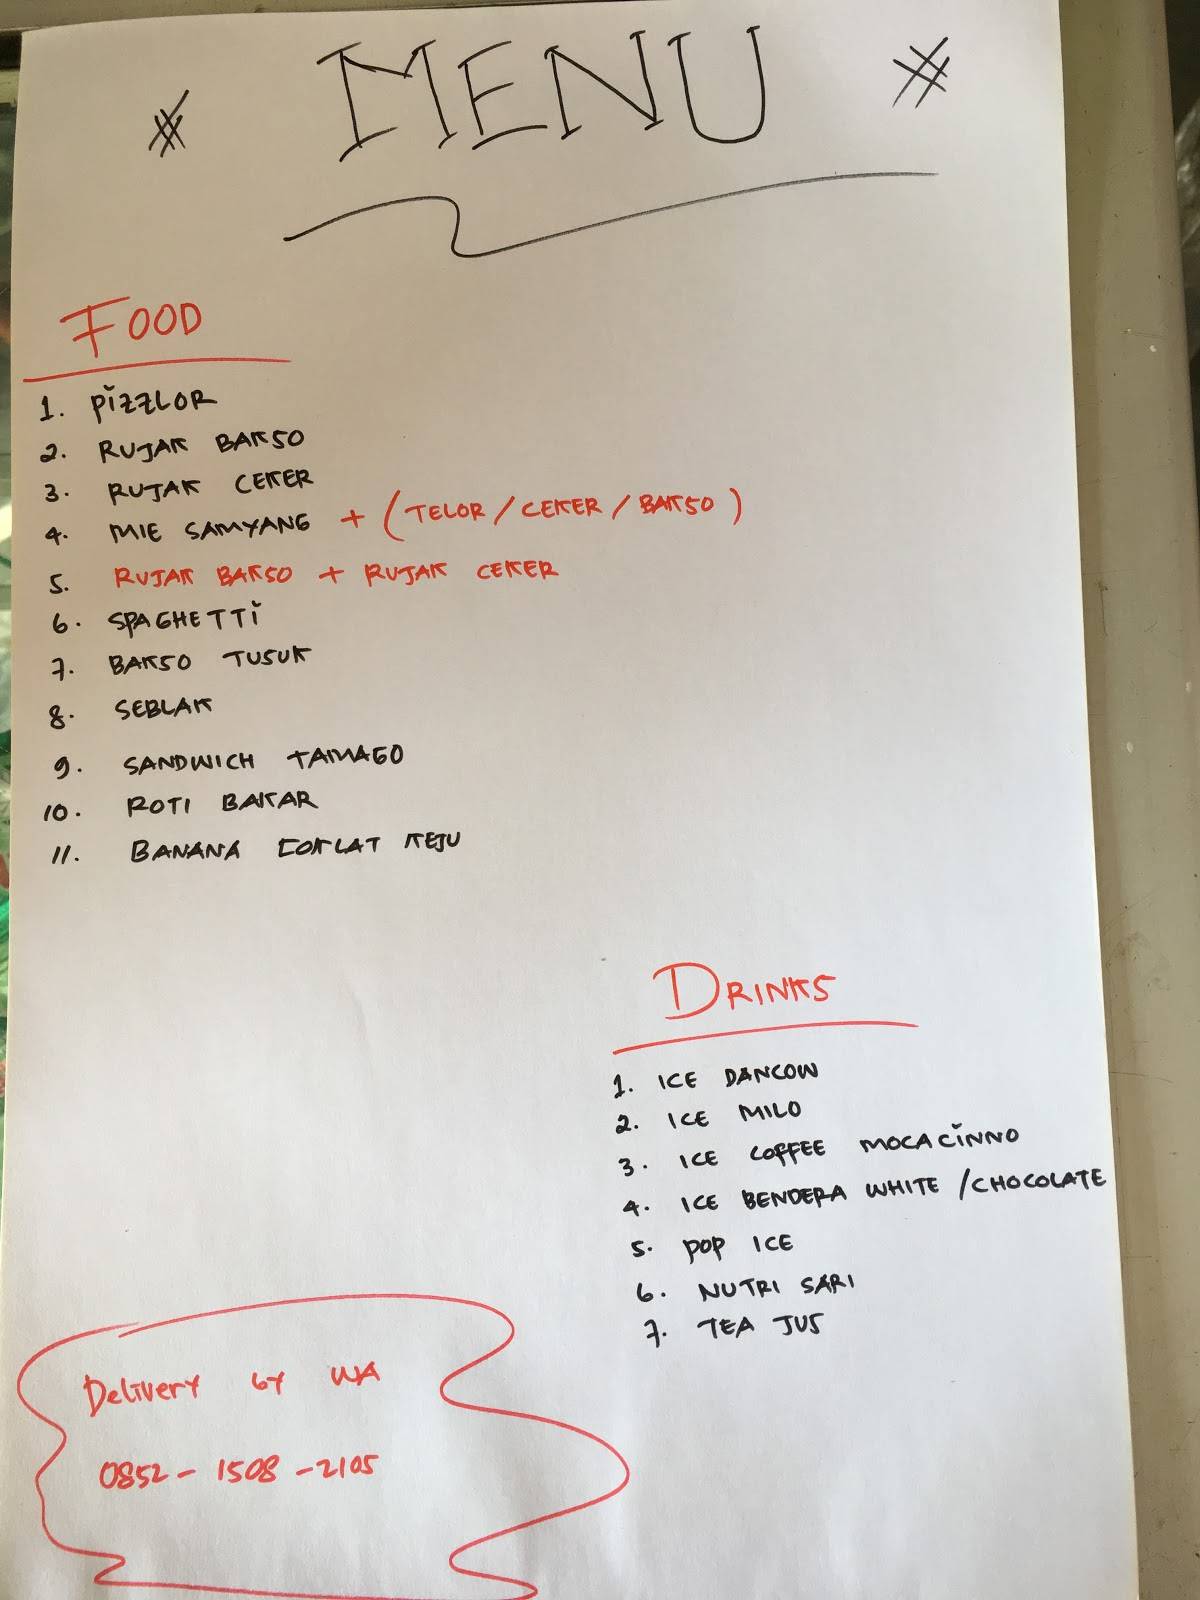 MENU
FOOD
1. PIZZLOR
2. RUJAK BAKSO
3. RUJAK CEKER
4. MIE SAMYANG + (TELOR / CEKER / BAKSO)
5. RUJAK BAKSO + RUJAK CEKER
6. SPAGHETTI
7. BAKSO TUSUK
8. SEBLAK
9. SANDWICH TAMAGO
10. ROTI BAKAR
11. BANANA COKLAT KEJU
DRINKS
1. ICE DANCOW
2. ICE MILO
3. ICE COFFEE MOCACINNO
4. ICE BENDERA WHITE / CHOCOLATE
5. POP ICE
6. NUTRI SARI
7. TEA JUS
Delivery by WA
0852 - 1508 - 2105